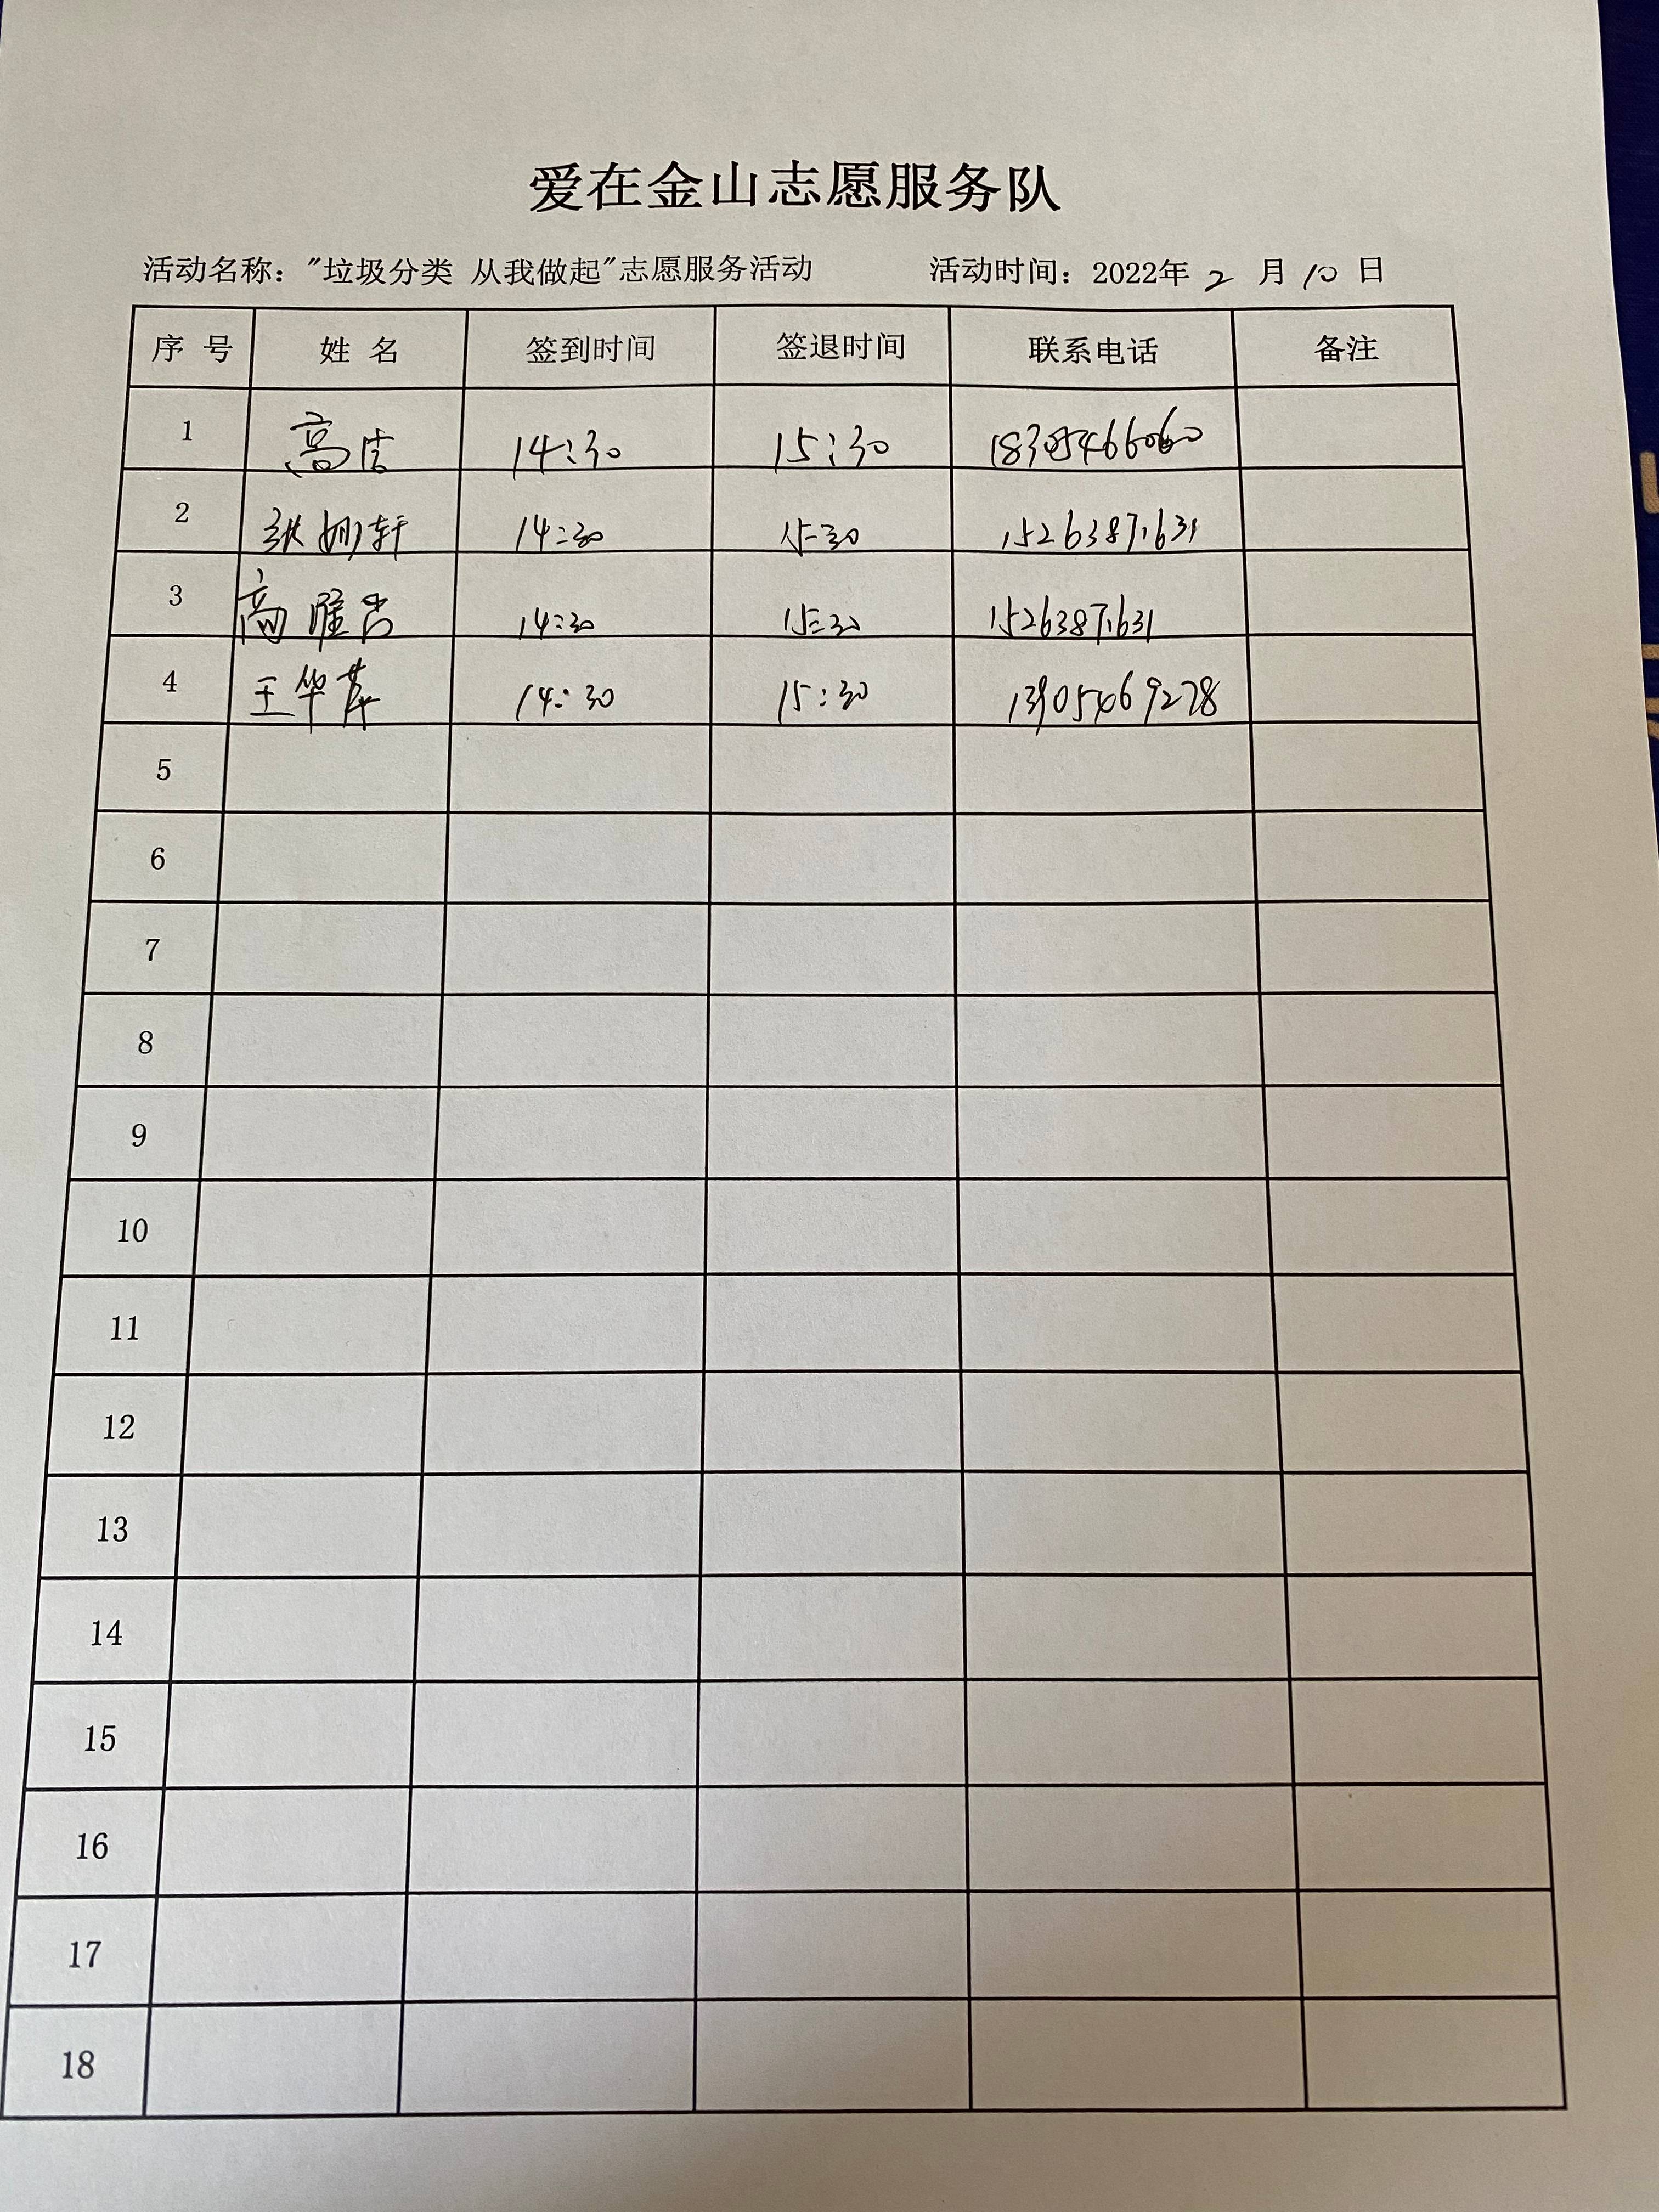 爱在金山志愿服务队
活动名称："垃圾分类 从我做起"志愿服务活动 活动时间：2022年 2 月 10 日
序 号 姓 名 签到时间 签退时间 联系电话 备注
1 高洁 14:30 15:30 18305466060
2 14:30 15:30 15263871631
3 高 14:30 15:30 15263871631
4 王华萍 14:30 15:30 13905469278
5
6
7
8
9
10
11
12
13
14
15
16
17
18